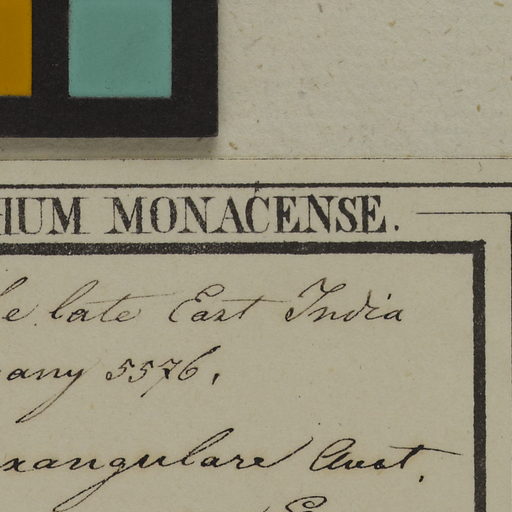 IUM MONACENSE.
e late East India
any 5576.
xangulare Auct.